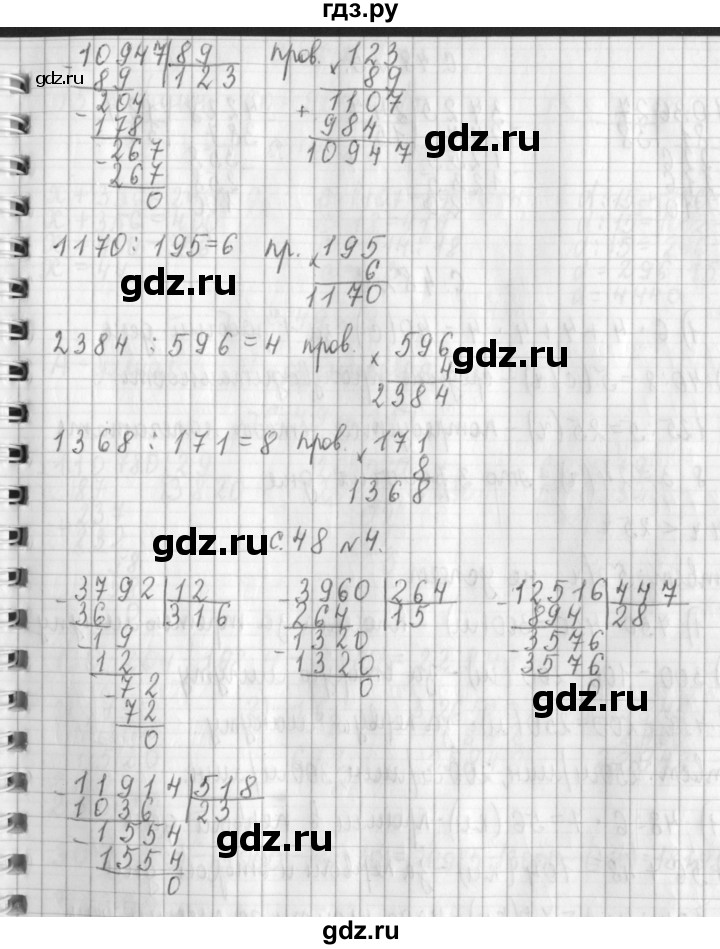 гдз.ру
10947 | 89 пров. 123
gdz.ru 89 | 123 × 89
204 1107
178 + 984 gdz.ru
267 10947
267
0
1170 : 195 = 6 пр. 195
gdz.ru × 6
1170
2384 : 596 = 4 пров. 596 gdz.ru
× 4
2384
1368 : 171 = 8 пров. 171
× 8
1368
gdz.ru с. 48 №4.
3792 | 12 3960 | 264 12516 | 447
36 | 316 264 | 15 894 | 28
19 1320 3576
12 1320 3576
72 0 0 gdz.ru
72
0
11914 | 518
1036 | 23
1554 gdz.ru
1554
0
gdz.ru